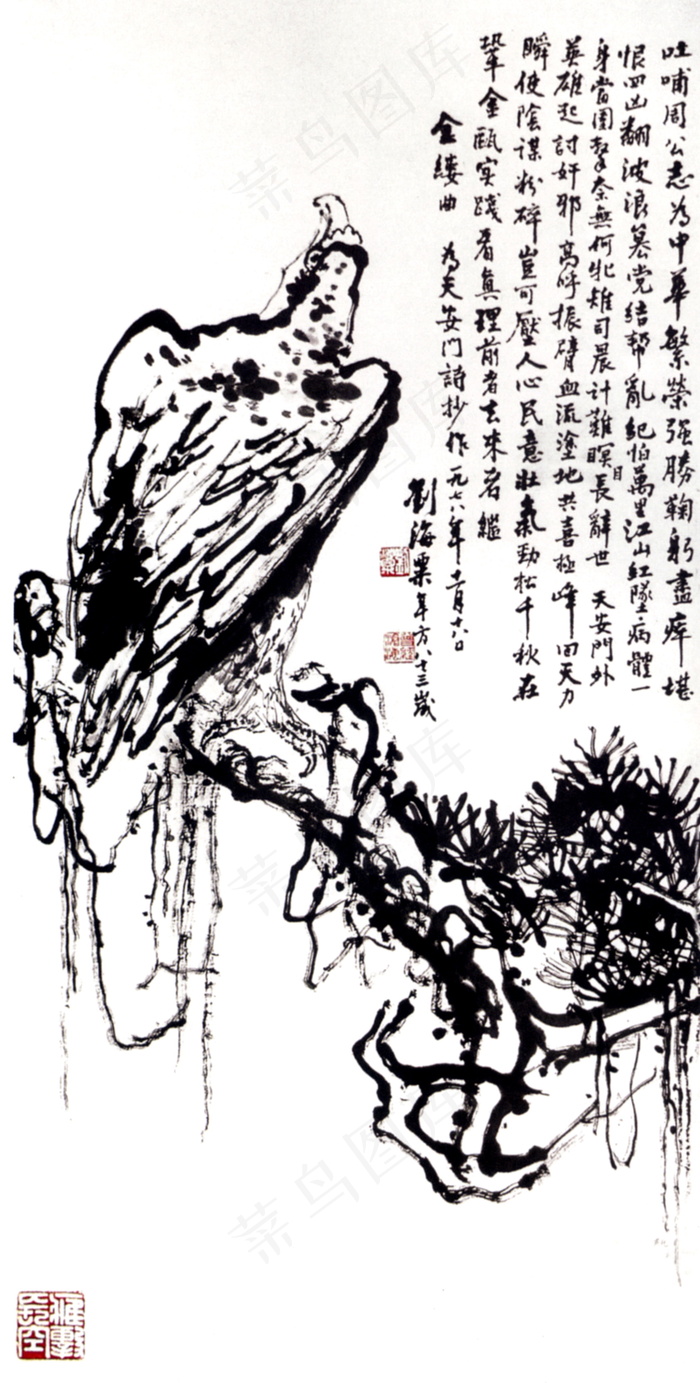 吐哺周公志為中華繁榮强勝鞠躬盡瘁堪
恨四凶翻波浪篡党结帮亂紀怕萬里江山紅墜病體一
身當園擊奈無何牝雉司晨计難瞑目長辭世 天安門外
英雄起討奸邪高呼振臂血流塗地共喜極峰回天力
瞬使陰謀粉碎豈可壓人心民意壯氣勁松千秋在
鞏金甌实踐看真理前者去来者繼
金縷曲 為天安门詩抄作一九七八年十一月十八日
劉海粟年方八十三歲
菜鸟图库
菜鸟图库
菜鸟图库
菜鸟图库